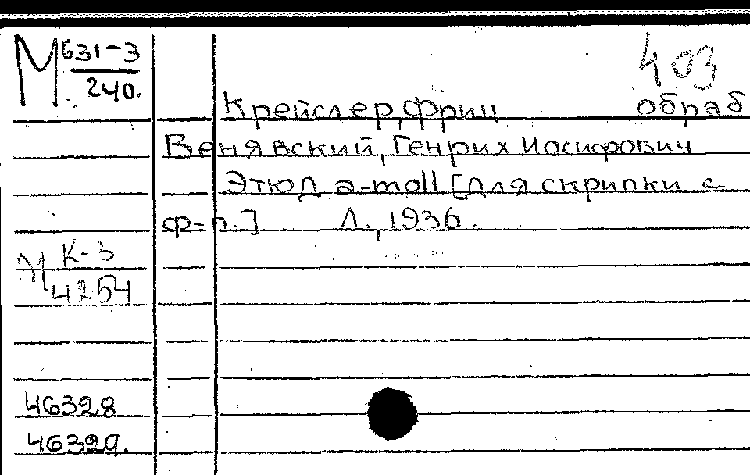 М 631-3
240.
403
Крейслер, Фриц обраб
Венявский, Генрих Иосифович
Этюд a-moll [для скрипки с
ф-п.] Л., 1936.
М К-3
4254
46328
46329.